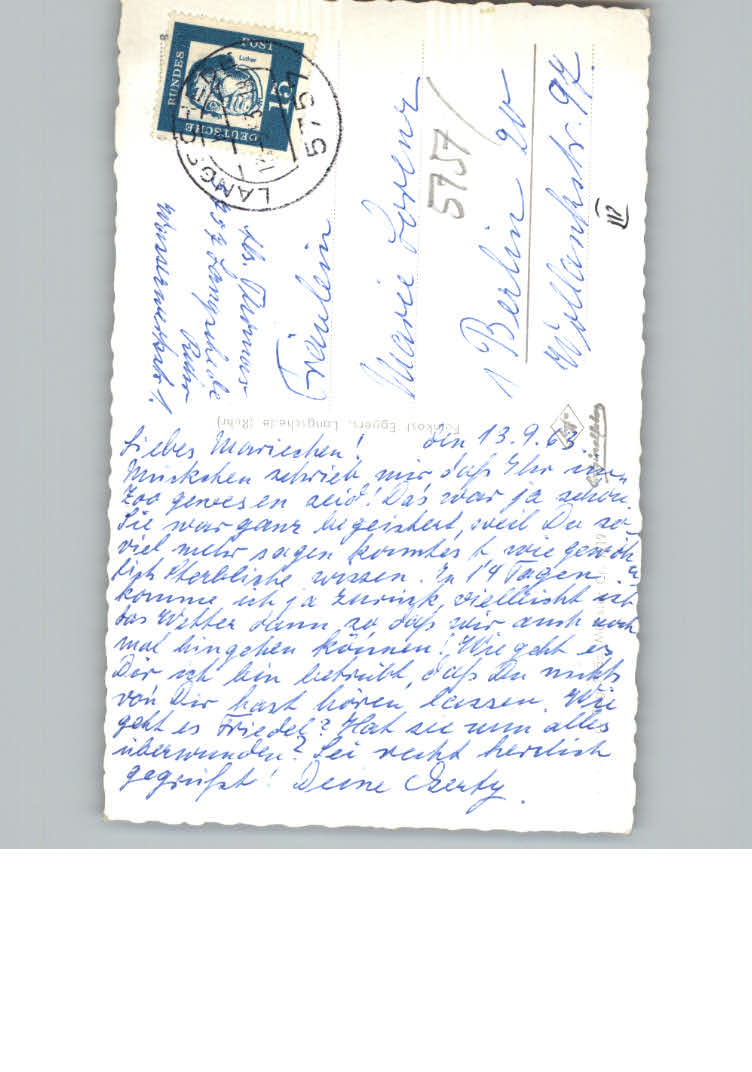 Liebes Mariechen! den 13.9.63.
Muckchen schrieb mir daß Ihr im
Zoo gewesen seid! Das war ja schön.
Sie war ganz begeistert, weil Du so
viel mehr sagen konntest, wie gewöhn
lich Sterbliche wissen. In 14 Tagen
komme ich ja zurück, vielleicht ist
das Wetter dann so daß wir auch noch
mal hingehen können! Wie geht es
Dir ich bin betrübt, daß Du nichts
von Dir hast hören lassen. Wie
geht es Friedel? Hat sie nun alles
überwunden? Sei recht herzlich
gegrüßt! Deine Gerty.
Fräulein
Marie Lorenz
1 Berlin 20
Wollankstr. 97
III
5757/
Abs.
Langschede
Ruhr
DEUTSCHE
BUNDES
POST
15
Luther
5751
Feinkost Eggers, Langschede (Ruhr)